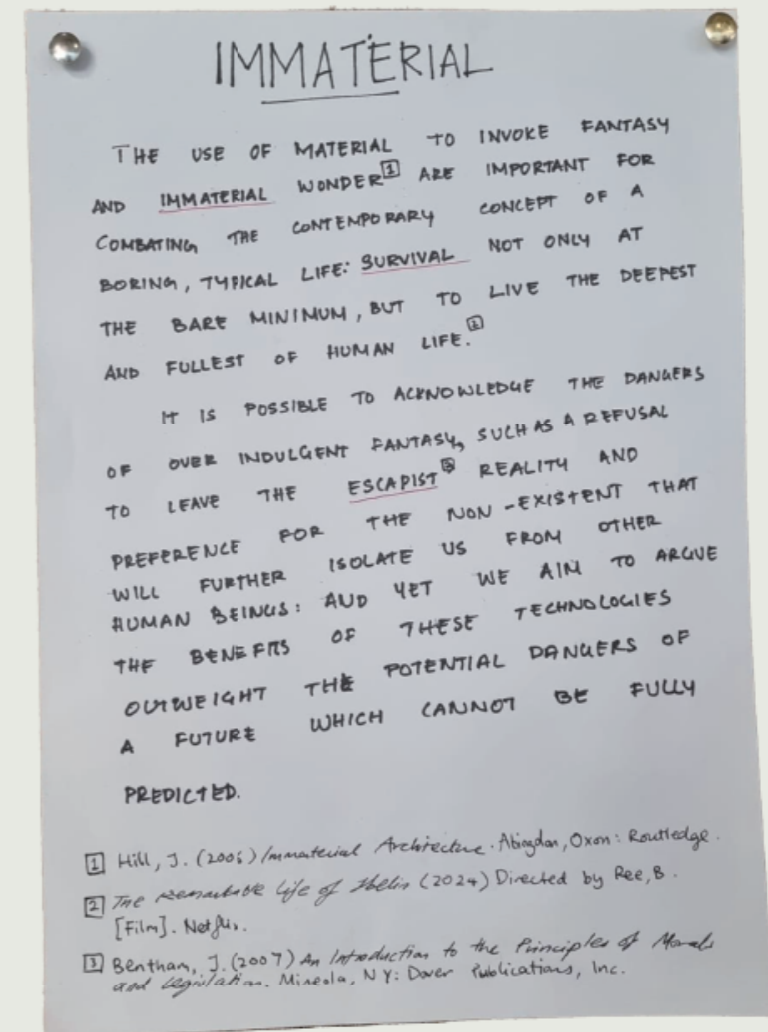 IMMATERIAL
THE USE OF MATERIAL TO INVOKE FANTASY
AND IMMATERIAL WONDER[1] ARE IMPORTANT FOR
COMBATING THE CONTEMPORARY CONCEPT OF A
BORING, TYPICAL LIFE: SURVIVAL NOT ONLY AT
THE BARE MINIMUM, BUT TO LIVE THE DEEPEST
AND FULLEST OF HUMAN LIFE.[2]
IT IS POSSIBLE TO ACKNOWLEDGE THE DANGERS
OF OVER INDULGENT FANTASY, SUCH AS A REFUSAL
TO LEAVE THE ESCAPIST[3] REALITY AND
PREFERENCE FOR THE NON-EXISTENT THAT
WILL FURTHER ISOLATE US FROM OTHER
HUMAN BEINGS: AND YET WE AIM TO ARGUE
THE BENEFITS OF THESE TECHNOLOGIES
OUTWEIGHT THE POTENTIAL DANGERS OF
A FUTURE WHICH CANNOT BE FULLY
PREDICTED.
[1] Hill, J. (2006) Immaterial Architecture. Abingdon, Oxon: Routledge.
[2] The Remarkable Life of Ibelin (2024) Directed by Ree, B.
[Film]. Netflix.
[3] Bentham, J. (2007) An Introduction to the Principles of Morals
and Legislation. Mineola, NY: Dover Publications, Inc.